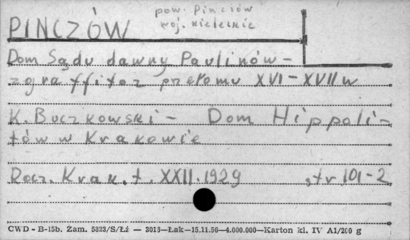 pow. Pińczów
woj. kieleckie
PINCZÓW
Dom Sądu dawny Paulinów –
zgraffitoz przełomu XVI – XVII w
K. Buczkowski – Dom Hippoli-
tów w Krakowie
Rocz. Krak. t. XXII. 1929 str 101-2
CWD - B-15b. Zam. 5823/S/Łi — 3013—Łak—15.11.56—4.000.000—Karton kl. IV A1/200 g